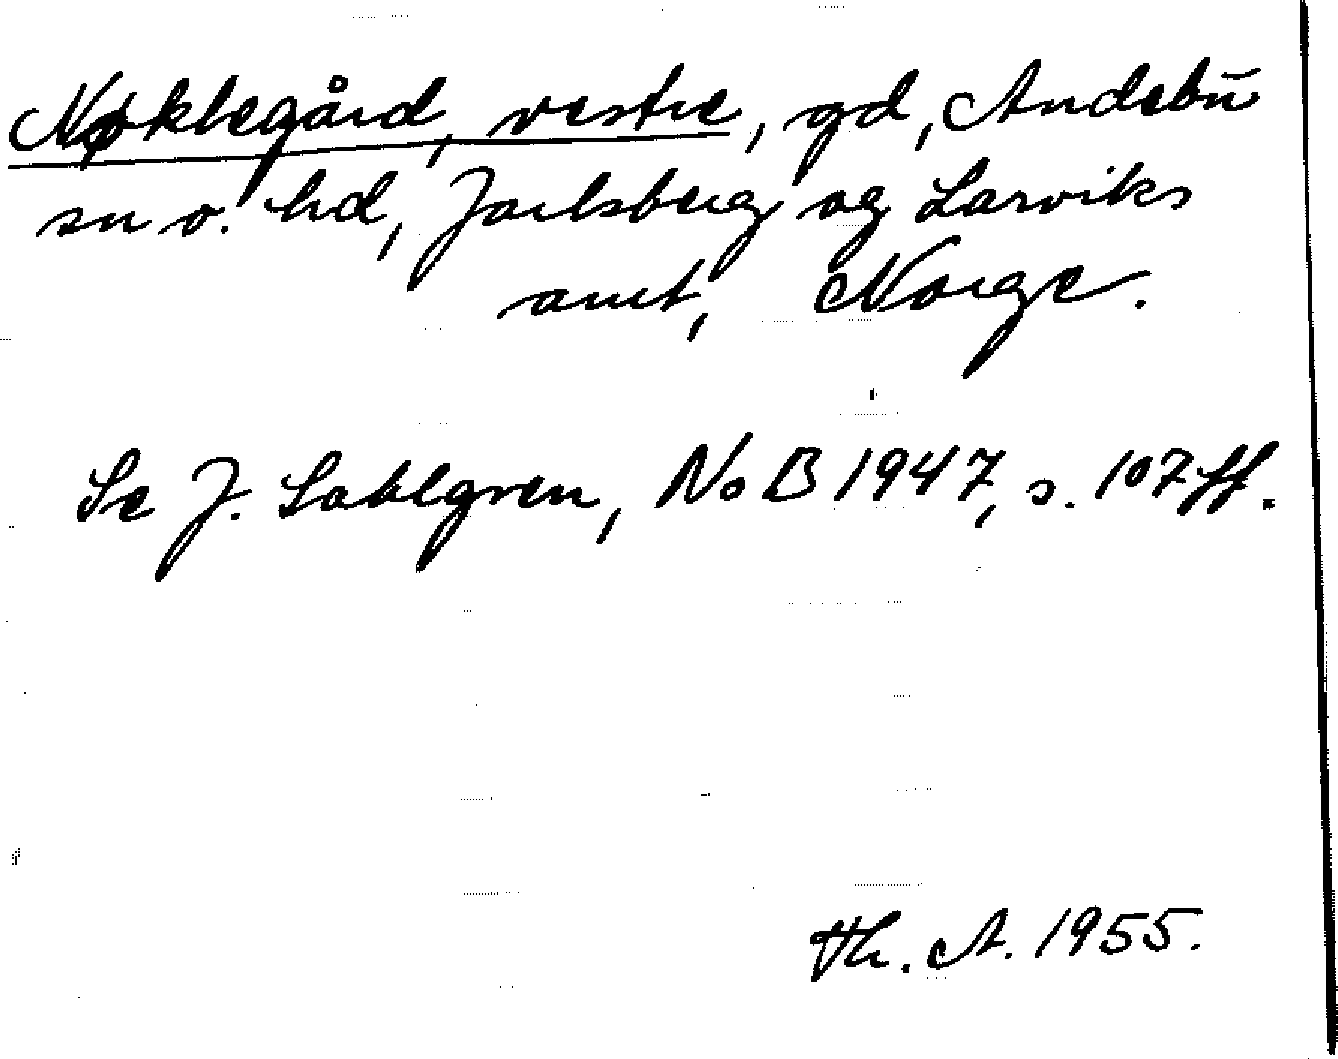 Nøklegård, vestre, gd, Andebu
sn o. hd, Jarlsberg og Larviks
amt, Norge.
Se J. Sahlgren, NoB 1947, s. 107 ff.
Th. A. 1955.